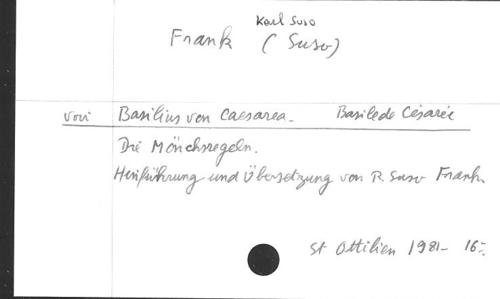 Karl Suso
Frank (Suso)
voir Basilius von Caesarea. Basile de Césarée
Die Mönchsregeln.
Hinführung und Übersetzung von R. Suso Frank.
St Ottilien 1981- 16-.